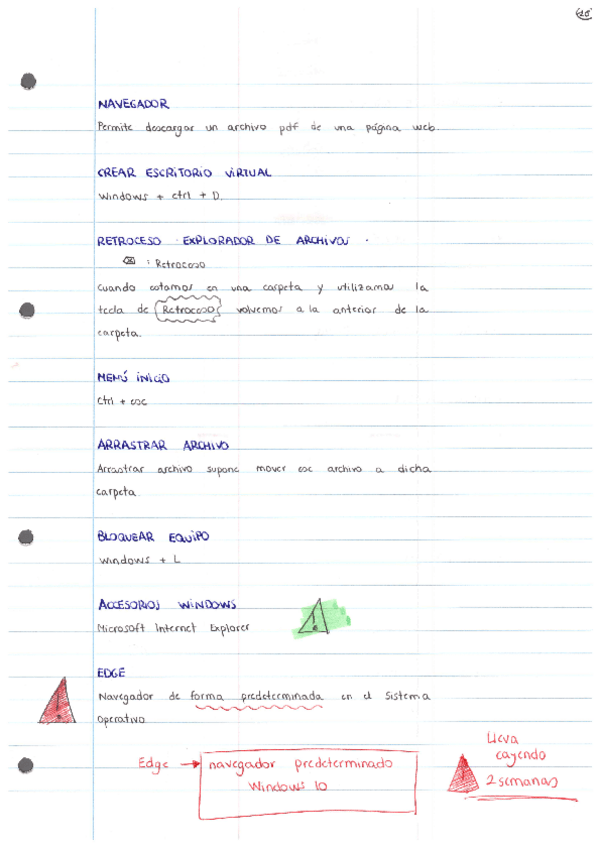 10
NAVEGADOR
Permite descargar un archivo pdf de una página web.
CREAR ESCRITORIO VIRTUAL
Windows + ctrl + D.
RETROCESO EXPLORADOR DE ARCHIVOS.
⌫ : Retroceso
Cuando estamos en una carpeta y utilizamos la
tecla de Retroceso volvemos a la anterior de la
carpeta.
MENÚ INICIO
ctrl + esc
ARRASTRAR ARCHIVO
Arrastrar archivo supone mover ese archivo a dicha
carpeta
BLOQUEAR EQUIPO
Windows + L
ACCESORIOS WINDOWS
Microsoft Internet Explorer
EDGE
Navegador de forma predeterminada en el Sistema
operativo
Edge → navegador predeterminado
Windows 10
Lleva
cayendo
2 semanas